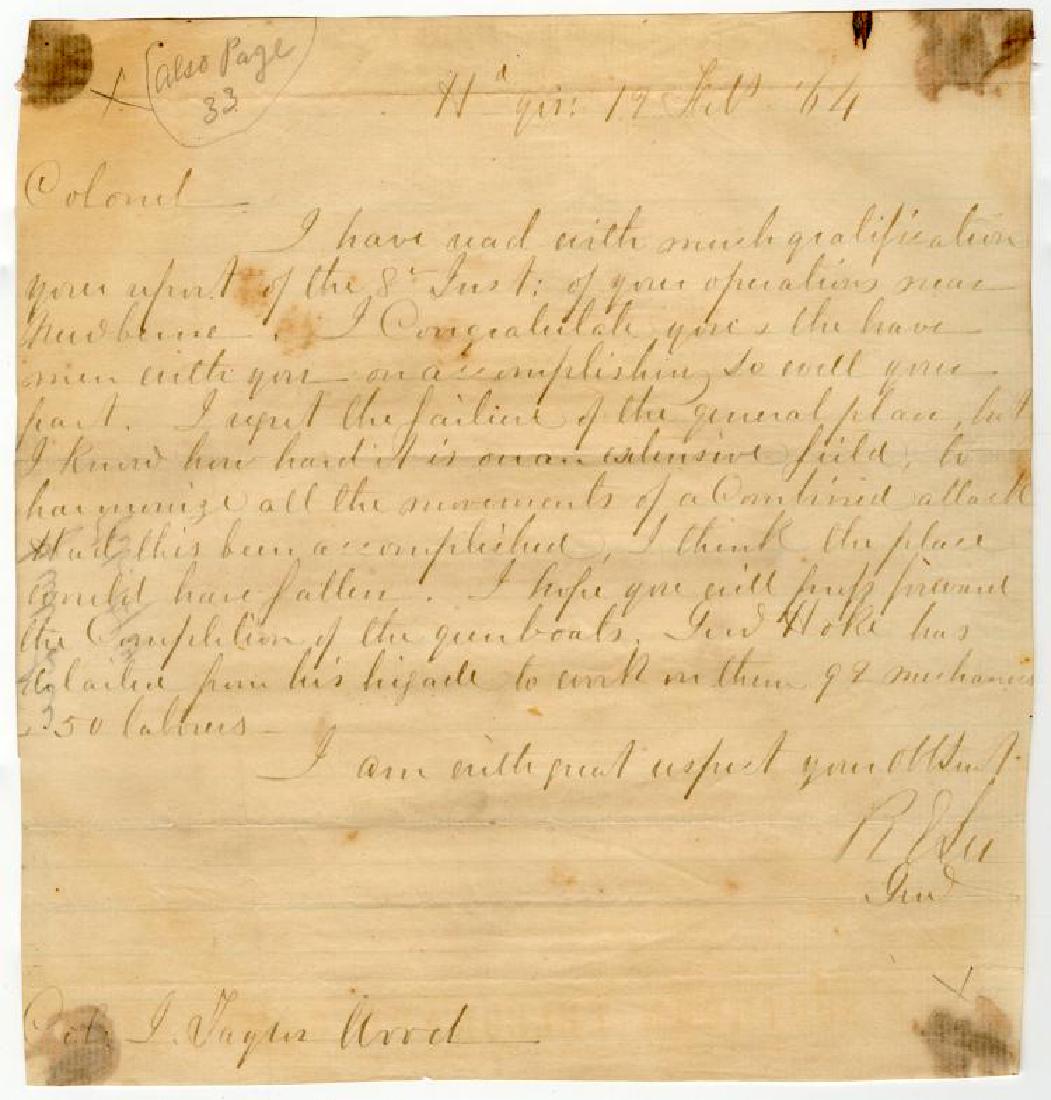 (Also Page
33
Hd qrs: 12 Feb '64
Colonel
I have read with much gratification
your report of the 8th Inst: of your operations near
Newberne. I Congratulate you & the brave
men with you on accomplishing so well your
part. I regret the failure of the general plan, but
I know how hard it is on an extensive field, to
harmonize all the movements of a Combined attack
Had this been accomplished, I think the place
would have fallen. I hope you will press forward
the Completion of the gunboats. Genl Hoke has
detailed from his brigade to work on them 92 mechanics
& 50 laborers
I am with great respect your Obt Servt
R E Lee
Genl
Col: J. Taylor Wood